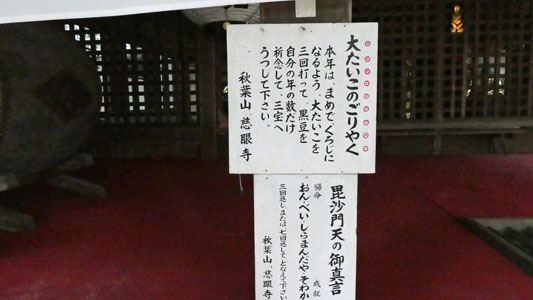 大たいこのごりやく
本年は、まめで、くろじに
なるよう、大たいこを
三回打って、黒豆を
自分の年の数だけ
祈念して、三宝へ
うつして下さい。
秋葉山 慈眼寺
毘沙門天の御真言
帰命
おん、べい、しらまんだや、そわか
成就
三回返し、または、七回返して、となえて下さい
秋葉山、慈眼寺